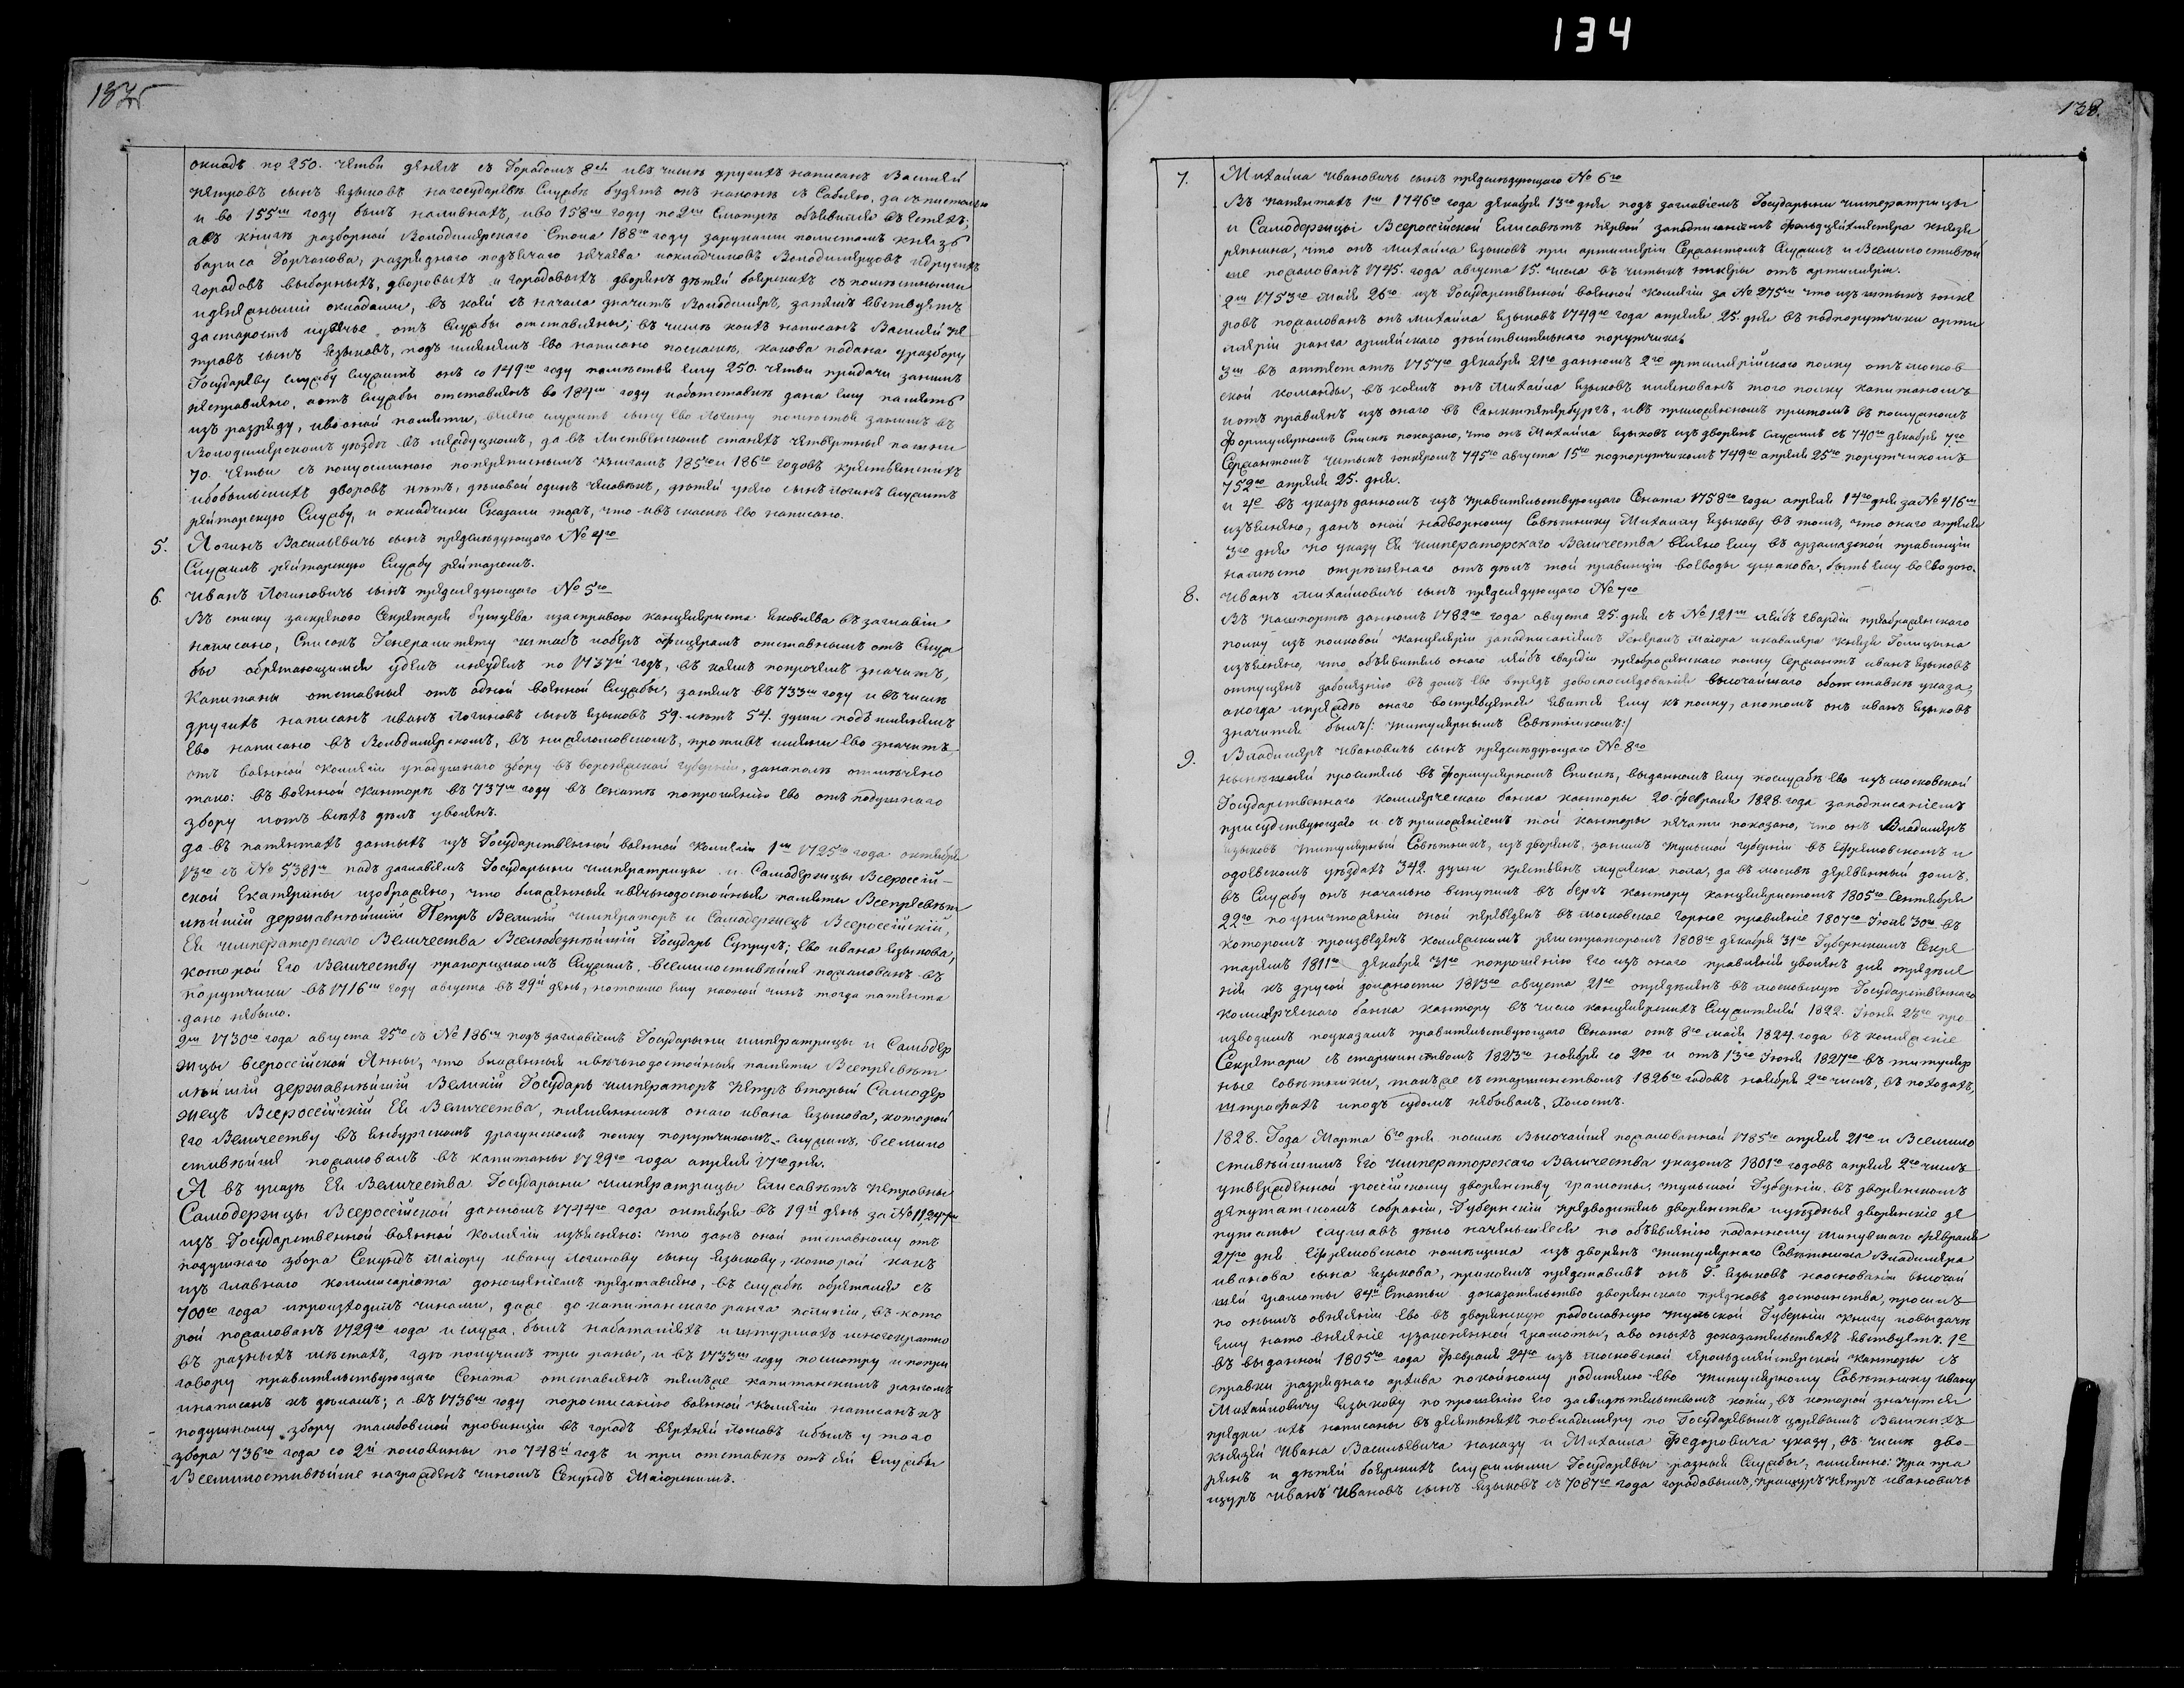 134
окладъ по 250. четьи денегъ съ Городомъ 8 ивъ числѣ другихъ написанъ Василей
Петровъ сынъ Языковъ на государевѣ Службѣ будетъ онъ на конѣ съ Саблею, да съ пистолью
и во 155мъ году былъ въ 158мъ году по 2мъ Смотръ объявился въ
авъ книгѣ разборной Володимерскаго Стола 188го году заруками полистамъ князь
бориса Горчакова, разряднаго подъячего нечаева иокладчиковъ Володимерцовъ идругихъ
городовъ выборныхъ, дворовыхъ и городовыхъ дворянъ дѣтей боярскихъ съ помѣстными
иденежными окладами, въ коей съ начала значитъ Володимеръ, затемъ явствуетъ
застарость иувечье отъ Службы отставлены; въ числѣ коихъ написанъ Василей Пе
тровъ сынъ Языковъ, подъ имянемъ Ево написано посказкѣ, какова подана уразбору
Государеву службу Служитъ онъ со 149го году помѣстья Ему 250. четьи придачи занимъ
несправлено, аотъ Службы отставленъ во 187мъ году иоботставкѣ дана Ему память
изъ разряду, ивооной памяти, велено служить сыну Ево Логину поместья занимъ въ
Володимерскомъ уездѣ въ медушскомъ, да въ станѣхъ четвертные пашни
70. четьи съ полуосминою попереписнымъ книгамъ 185го и 186го годовъ крестьянскихъ
ибобыльскихъ дворовъ нѣтъ, дѣловой одинъ человѣкъ, дѣтей унего сынъ Логинъ Служитъ
рейтарскую Службу, и окладчики Сказали тожъ, что ивъ сказкѣ Ево написано.
5. Логинъ Васильевичь сынъ предследующаго № 4го
Служилъ рейтарскую Службу рейтаромъ.
6. Иванъ Логиновичь сынъ предследующаго № 5го
Въ списку закрепою Секретаря изасправою канцеляриста Яковлева въ заглавіи
написано, Списокъ Генералитету иштабъ иоберъ офицерамъ отставнымъ отъ Служ
бы обретающимся удѣлъ инеудѣлъ по 1737й годъ, въ коемъ попрочемъ значитъ,
Капитаны отставные отъ одной военной Службы, затемъ въ 733мъ году и въ числѣ
другихъ написанъ иванъ Логиновъ сынъ Языковъ 59. лѣтъ 54. души подъ имянемъ
Ево написано въ Володимерскомъ, въ нижеломовскомъ, противъ имяни Ево значитъ,
отъ военной Коллегіи уподушнаго збору въ воронежской Губерніи, данаполѣ отмѣчено
тако: въ военной Канторѣ въ 737мъ году въ Сенатѣ попрошенію Ево отъ подушнаго
збору иотъ всехъ дѣлъ уволенъ.
да въ патентахъ данныхъ изъ Государственной военной Коллегіи 1мъ 1725го года октября
13го съ № 5381мъ подъ заглавіемъ Государыни императрицы и Самодержицы Всероссій-
ской Екатерины изображено, что блаженныя ивечьнодостойныя памяти Всепресвет
лѣйшій державнѣйшій Петръ Великій императоръ и Самодержецъ Всероссійскій,
Ея императорскаго Величества Вселюбезнѣйшій Государь Супругъ; Ево ивана Языкова,
которой Его Величеству прапорщикомъ Служилъ, всемилостивѣйше пожаловалъ въ
порутчики въ 1716мъ году августа въ 29й день, нотокмо Ему наоной чинъ тогда патента
дано небыло.
2мъ 1730го года августа 25го съ № 186мъ подъ заглавіемъ Государыни императрицы и Самодер
жицы всероссійской Анны, что блаженныя ивѣчьнодостойныя памяти Всепресвет
лѣйшій державнѣйшій Великій Государь императоръ Петръ вторый Самодер
жецъ Всероссійскій Ея Величества, племянникъ онаго ивана Языкова, которой
Его Величеству въ Енбургскомъ драгунскомъ полку порутчикомъ служилъ, всемило
стивѣйше пожаловалъ въ капитаны 1729го года апреля 17го дня.
А въ указѣ Ея Величества Государыни императрицы Елисаветъ Петровны
Самодержицы Всероссійской данномъ 1744го года октября въ 19й день за № 11,247мъ
изъ Государственной военной Коллегіи изъяснено: что данъ оной отставному отъ
подушнаго збора Секундъ Маіору ивану Логинову сыну Языкову, которой какъ
изъ главнаго коммисаріата доношеніемъ представлено, въ службѣ обретался съ
700го года ипроизходилъ чинами, даже до капитанскаго ранга копіи, въ кото
рой пожалованъ 1729го года и служа, былъ набаталіяхъ иштурмахъ многократно
въ разныхъ мѣстахъ, гдѣ получилъ три раны, и въ 1733мъ году посмотру ипопри
говору правительствующаго Сената отставленъ темъже капитанскимъ рангомъ
инаписанъ къ дѣламъ; а въ 1736мъ году поросписанію военной Коллегіи написанъ къ
подушному збору тамбовской провинціи въ городъ верхней Ломовъ ибылъ у того
збора 736го года со 2й половины по 748й годъ и при отставкѣ отъ сей Службы
Всемилостивѣйше награжденъ чиномъ Секундъ Маіорскимъ.
138.
7. Михайла Ивановичь сынъ предследующаго № 6го
Въ патентахъ 1мъ 1746го года декабря 13го дня подъ заглавіемъ Государыни императрицы
и Самодержицы Всероссійской Елисаветъ первой заподписаніемъ Фельдцейхмейстера князя
репнина, что онъ Михайла Языковъ при артиллеріи Сержантомъ Служилъ и Всемилостивѣй
ше пожалованъ 1745. года августа 15. числа въ штыкъ юнкеры отъ артиллеріи.
2мъ 1753го майя 26го изъ Государственной военной Коллегіи за № 275мъ что изъ штыкъ юнке
ровъ пожалованъ онъ Михайла Языковъ 1749го года апреля 25. дня въ подпорутчики арти
ллеріи ранга армейскаго действительнаго порутчика.
3мъ въ аттестатѣ 1757го декабря 21го данномъ 2го артиллерійскаго полку отъ москов
ской команды, въ коемъ онъ Михайла Языковъ имянованъ того полку капитаномъ
иотъ правленъ изъ онаго въ Санктпетербургъ, ивъ приложенномъ притомъ въ послужномъ
Формулярномъ Спискѣ показано, что онъ Михайла Языковъ изъ дворянъ Служилъ съ 740го декабря 7го
Сержантомъ штыкъ юнкеромъ 745го августа 15го подпорутчикомъ 749го апреля 25го порутчикомъ
752го апреля 25. дня.
и 4е въ указѣ данномъ изъ Правительствующаго Сената 1758го года апреля 14го дня за № 416мъ
изъяснено, данъ оной надворному Совѣтнику Михайлу Языкову въ томъ, что онаго апреля
3го дня по указу Ея императорскаго Величества велено Ему въ арзамазской правинціи
намѣсто отрѣшенаго отъ дѣлъ той правинціи воеводы ушакова, быть Ему воеводою.
8. Иванъ Михайловичь сынъ предследующаго № 7го
Въ Пашпортѣ данномъ 1782го года августа 25. дня съ № 121мъ лейбъ гвардіи преображенскаго
полку изъ полковой канцеляріи заподписаніемъ Генералъ Маіора икавалера князя Голицына
изъяснено, что объявитель онаго лейбъ гвардіи преображенскаго полку Сержантъ иванъ Языковъ
отпущенъ заболезнію въ домъ Ево впредъ довоспоследованія высочайшаго оботставкѣ указа,
акогда прежде онаго востребуется явится Ему къ полку, апотомъ онъ иванъ Языковъ
значится былъ /: титулярнымъ Совѣтникомъ :/
9. Владимеръ Ивановичь сынъ предследующаго № 8го
нынѣшней проситель въ Формулярномъ Спискѣ, выданномъ Ему послужбѣ Ево изъ московской
Государственнаго коммерческаго банка канторы 20. февраля 1828 года заподписаніемъ
присудствующаго и съ приложеніемъ той канторы печати показано, что онъ Владимеръ
языковъ титулярный Совѣтникъ, изъ дворянъ, занимъ тульской губерніи въ Ефремовскомъ и
одоевскомъ уѣздахъ 342. души крестьянъ мужеска пола, да въ москвѣ деревянный домъ,
въ Службу онъ начально вступилъ въ бергъ кантору канцеляристомъ 1805го Сентября
22го поуничтоженіи оной переведенъ въ московское Горное правленіе 1807го Іюля 30го въ
которомъ произведенъ колежскимъ регистраторомъ 1808го декабря 31го Губернскимъ Секре
таремъ 1811го декабря 31го попрошенію Его изъ онаго правленія уволенъ для определе
нія къ другой должности 1813го августа 21го определенъ въ московскую Государственнаго
коммерческаго банка кантору въ число канцелярскихъ Служителей 1822. Іюня 28го про
изводимъ поуказамъ правительствующаго Сената отъ 8го майя 1824. года въ колежскіе
Секретари съ старшинствомъ 1823го ноября со 2го и отъ 13го Іюня 1827го въ титуляр
ные Совѣтники, такъже съ старшинствомъ 1826го годовъ ноября 2го числъ, въ походахъ,
штрафахъ иподъ судомъ небывалъ, Холостъ.
1828. Года Марта 6го дня посилѣ Высочайше пожалованной 1785го апреля 21го и Всемило
стивѣйшимъ Его императорскаго Величества указомъ 1801го годовъ апреля 2го числъ
утвержденной россійскому дворянству грамоты, тульской Губерніи въ дворянскомъ
депутатскомъ собраніи, Губернскій предводитель дворянства иуѣздные дворянскіе де
путаты слушавъ дѣло начавшееся по объявленію поданному минувшаго февраля
27го дня Ефремовскаго помещика изъ дворянъ титулярнаго Совѣтника Владимера
иванова сына Языкова, прикоемъ представивъ онъ Г. Языковъ наоснованіи высочай
шей грамоты 84й Статьи доказательство дворянскаго предковъ достоинства, просилъ
по онымъ овнесеніи Ево въ дворянскую родословную тульской Губерніи книгу иовыдачѣ
Ему нато внесеніе узаконенной грамоты, аво оныхъ доказательствахъ явствуетъ. 1е
въ выданной 1805го года Февраля 24го изъ московской Герольдмейстерской канторы съ
справки разряднаго архива покойному родителю Ево титулярному Совѣтнику ивану
Михайловичу Языкову по прошенію Его засвидетельствомъ копіи, въ которой значутся
предки ихъ написаны въ десятняхъ повладимеру по Государевымъ царевымъ Великихъ
князей Ивана Васильевича наказу и Михаила Федоровича указу, въ числѣ дво-
рянъ и дѣтей боярскихъ служилыми Государевы разныя Службы, аимянно: Пра пра
щуръ Иванъ Ивановъ сынъ Языковъ съ 7087го года городовымъ, Пращуръ Петръ Ивановичь